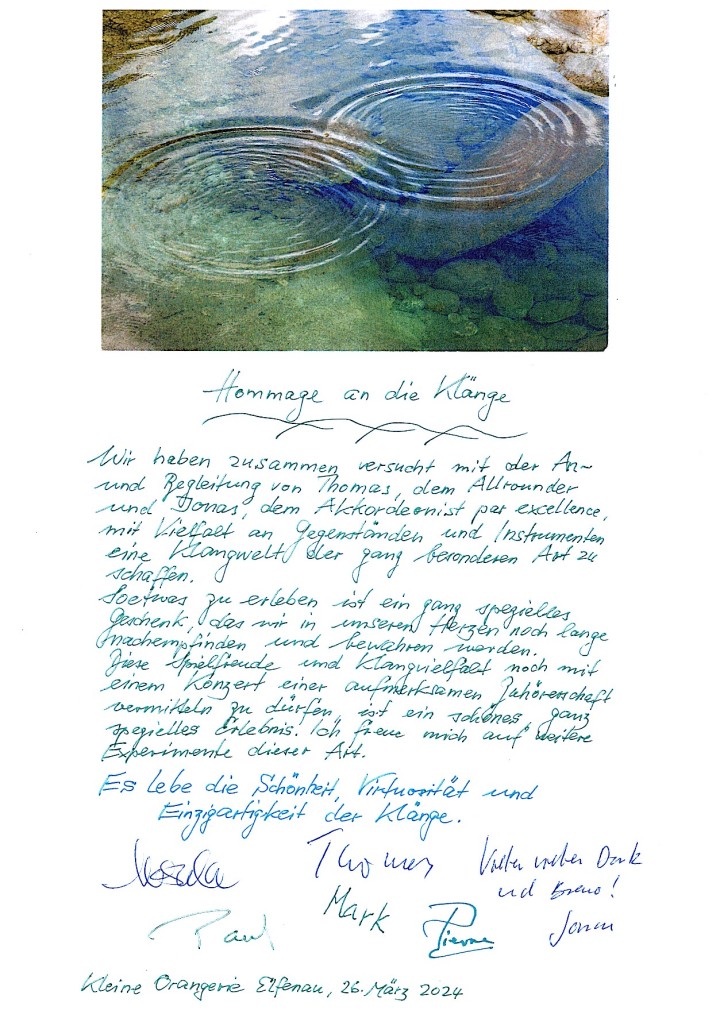 Hommage an die Klänge
Wir haben zusammen versucht mit der An-
und Begleitung von Thomas, dem Allrounder
und Jonas, dem Akkordeonist par excellence,
mit Vielfalt an Gegenständen und Instrumenten
eine Klangwelt der ganz besonderen Art zu
schaffen.
Soetwas zu erleben ist ein ganz spezielles
Geschenk, das wir in unseren Herzen noch lange
nachempfinden und bewahren werden.
Diese Spielfreude und Klangvielfalt noch mit
einem Konzert einer aufmerksamen Zuhörerschaft
vermitteln zu dürfen, ist ein schönes, ganz
spezielles Erlebnis. Ich freue mich auf weitere
Experimente dieser Art.
Es lebe die Schönheit, Virtuosität und
Einzigartigkeit der Klänge.
Thomas
Vielen vielen Dank
und Bravo!
Paul
Mark
Pierre
Jonas
Kleine Orangerie Elfenau, 26. März 2024